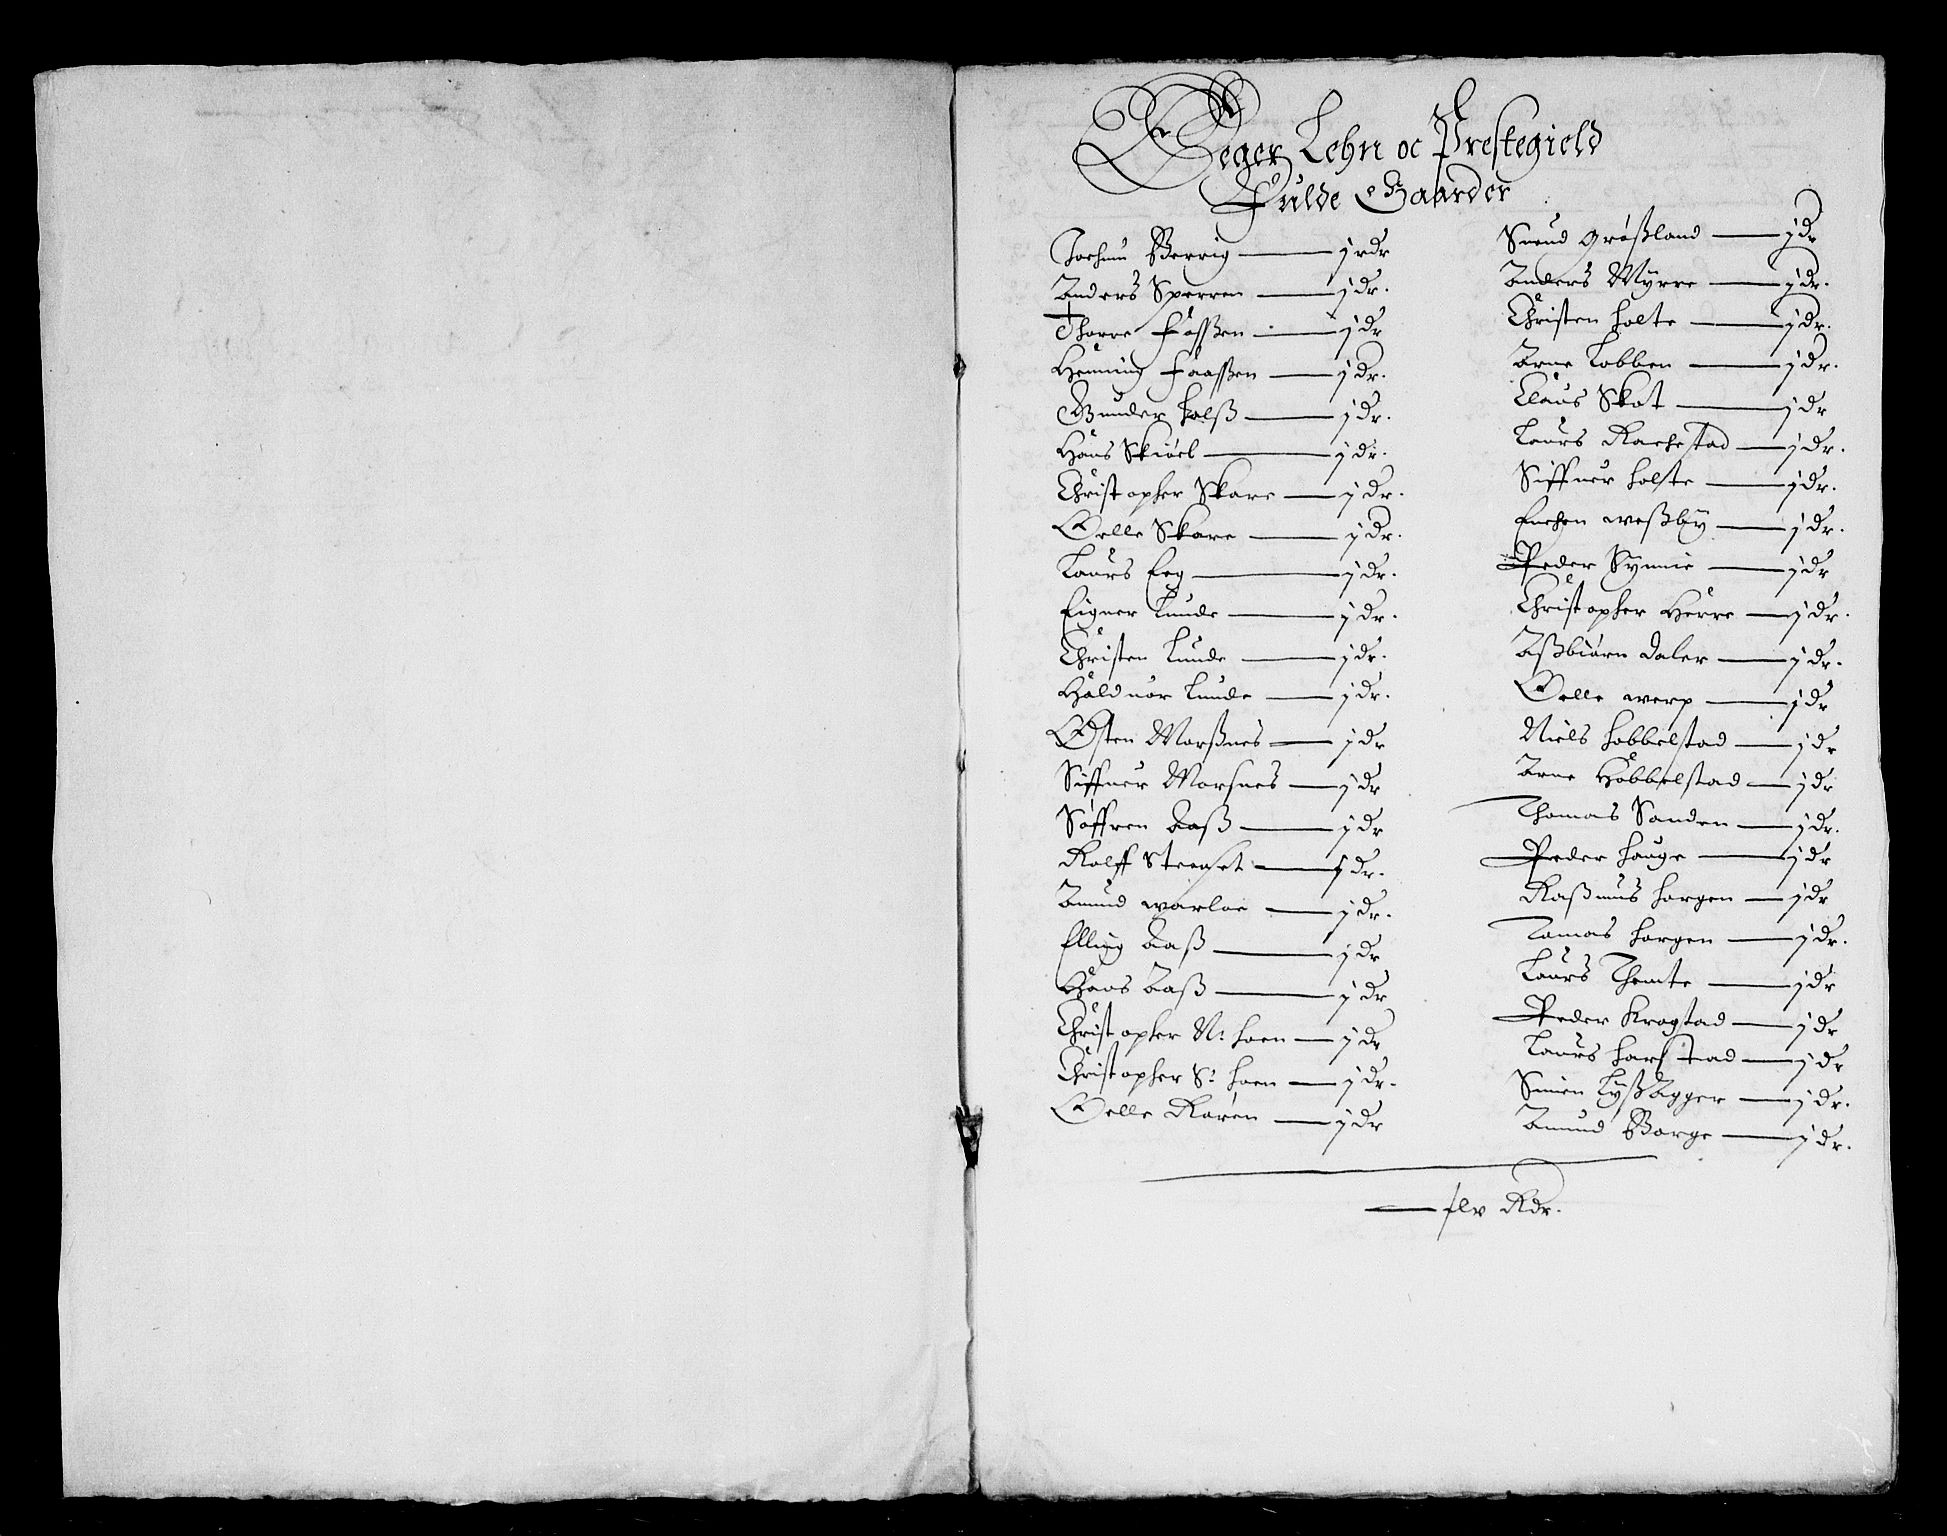 Eger Lehn oc Prestegield
Fulde Gaarder
Jochum Berrig — j rdr
Anders Sperren — j dr.
Thorre Fossßen — j dr
Henning Faassßen — j dr.
Gunder Holß — j dr.
Hans Skiøel — j dr.
Christopher Skare — j dr.
Oelle Skare — j dr.
Laurs Eeg — j dr.
Eigner Lunde — j dr.
Christen Lunde — j dr.
Halduor Lunde — j dr.
Østen Morßnes — j dr
Siffuer Morsnes — j dr
Søffren Aaß — j dr
Rolff Steenset — j dr.
Amund warloe — j dr.
Elling Aaß — j dr
Hans Aaß — j dr
Christopher N: hoen — j dr
Christopher S: hoen — j dr.
Oelle Røren — j dr
Suend Grøßland — j dr
Anders Myrre — j dr.
Christen holte — j dr.
Arne Lobben — j dr.
Claus Skot — j dr
Laurs Rachestad — j dr.
Siffuer holte — j dr.
Enchen weßby — j dr.
Peder Synnie — j dr
Christopher Herre — j dr.
Aßbiørn daler — j dr.
Oelle werp — j dr
Niels hobbelstad — j dr
Arne Hobbelstad — j dr
Thomas Sanden — j dr.
Peder hauge — j dr
Raßmus horgen — j dr
Tomas horgen — j dr.
Laurs Themte — j dr
Peder Krogstad — j dr
Laurs harstad — j dr
Simen Lyßagger — j dr.
Amund Borge — j dr.
— xlv Rdr.